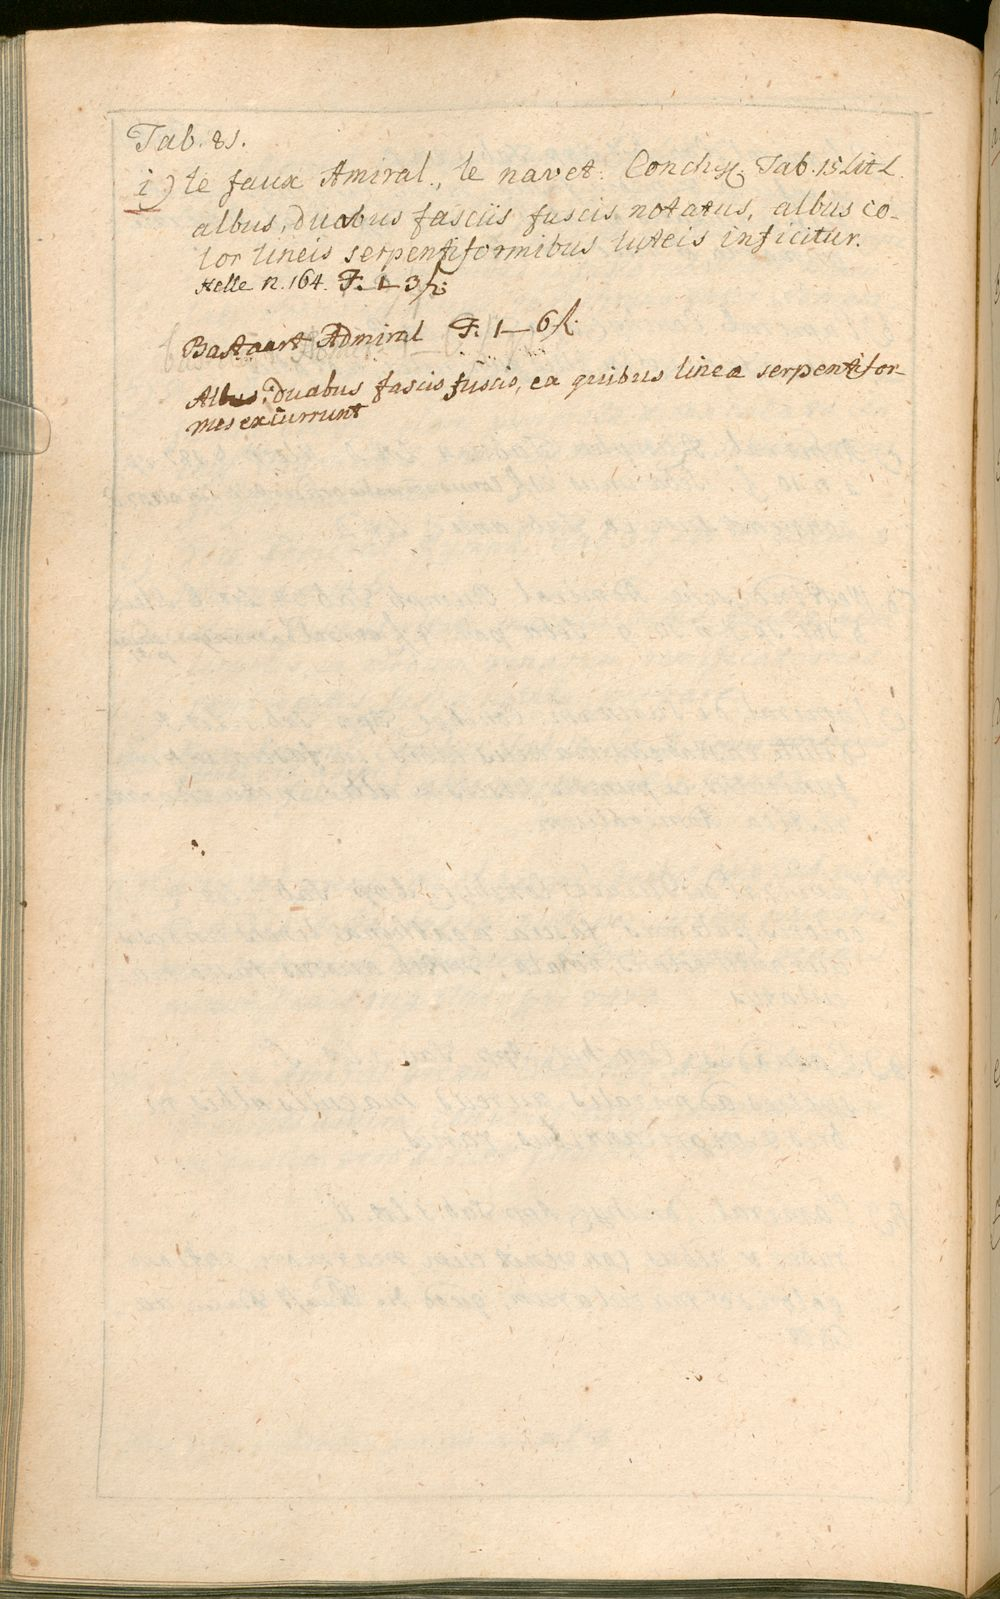 Tab. 81.
i) le faux Amiral, le navet. Conchyl. Tab. 15 Lit L.
albus, duobus fasciis fuscis notatus, albus co-
lor lineis serpentiformibus luteis inficitur.
Helle n. 164. F. 1–3 fl:
Bastaart Admiral F. 1–6 fl.
Albus: duabus fascis fuscis, ex quibus lineæ serpentifor-
mes excurrunt